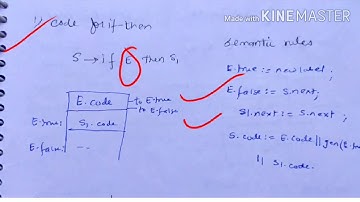 Made with KINEMASTER
1) code for if-then
S → if E then S1
semantic rules
E.code
to E.true
to E.false
E.true:
S1.code
E.false:
...
E.true := newlabel;
E.false := S.next;
S1.next := S.next;
S.code := E.code || gen(E.
|| S1.code.